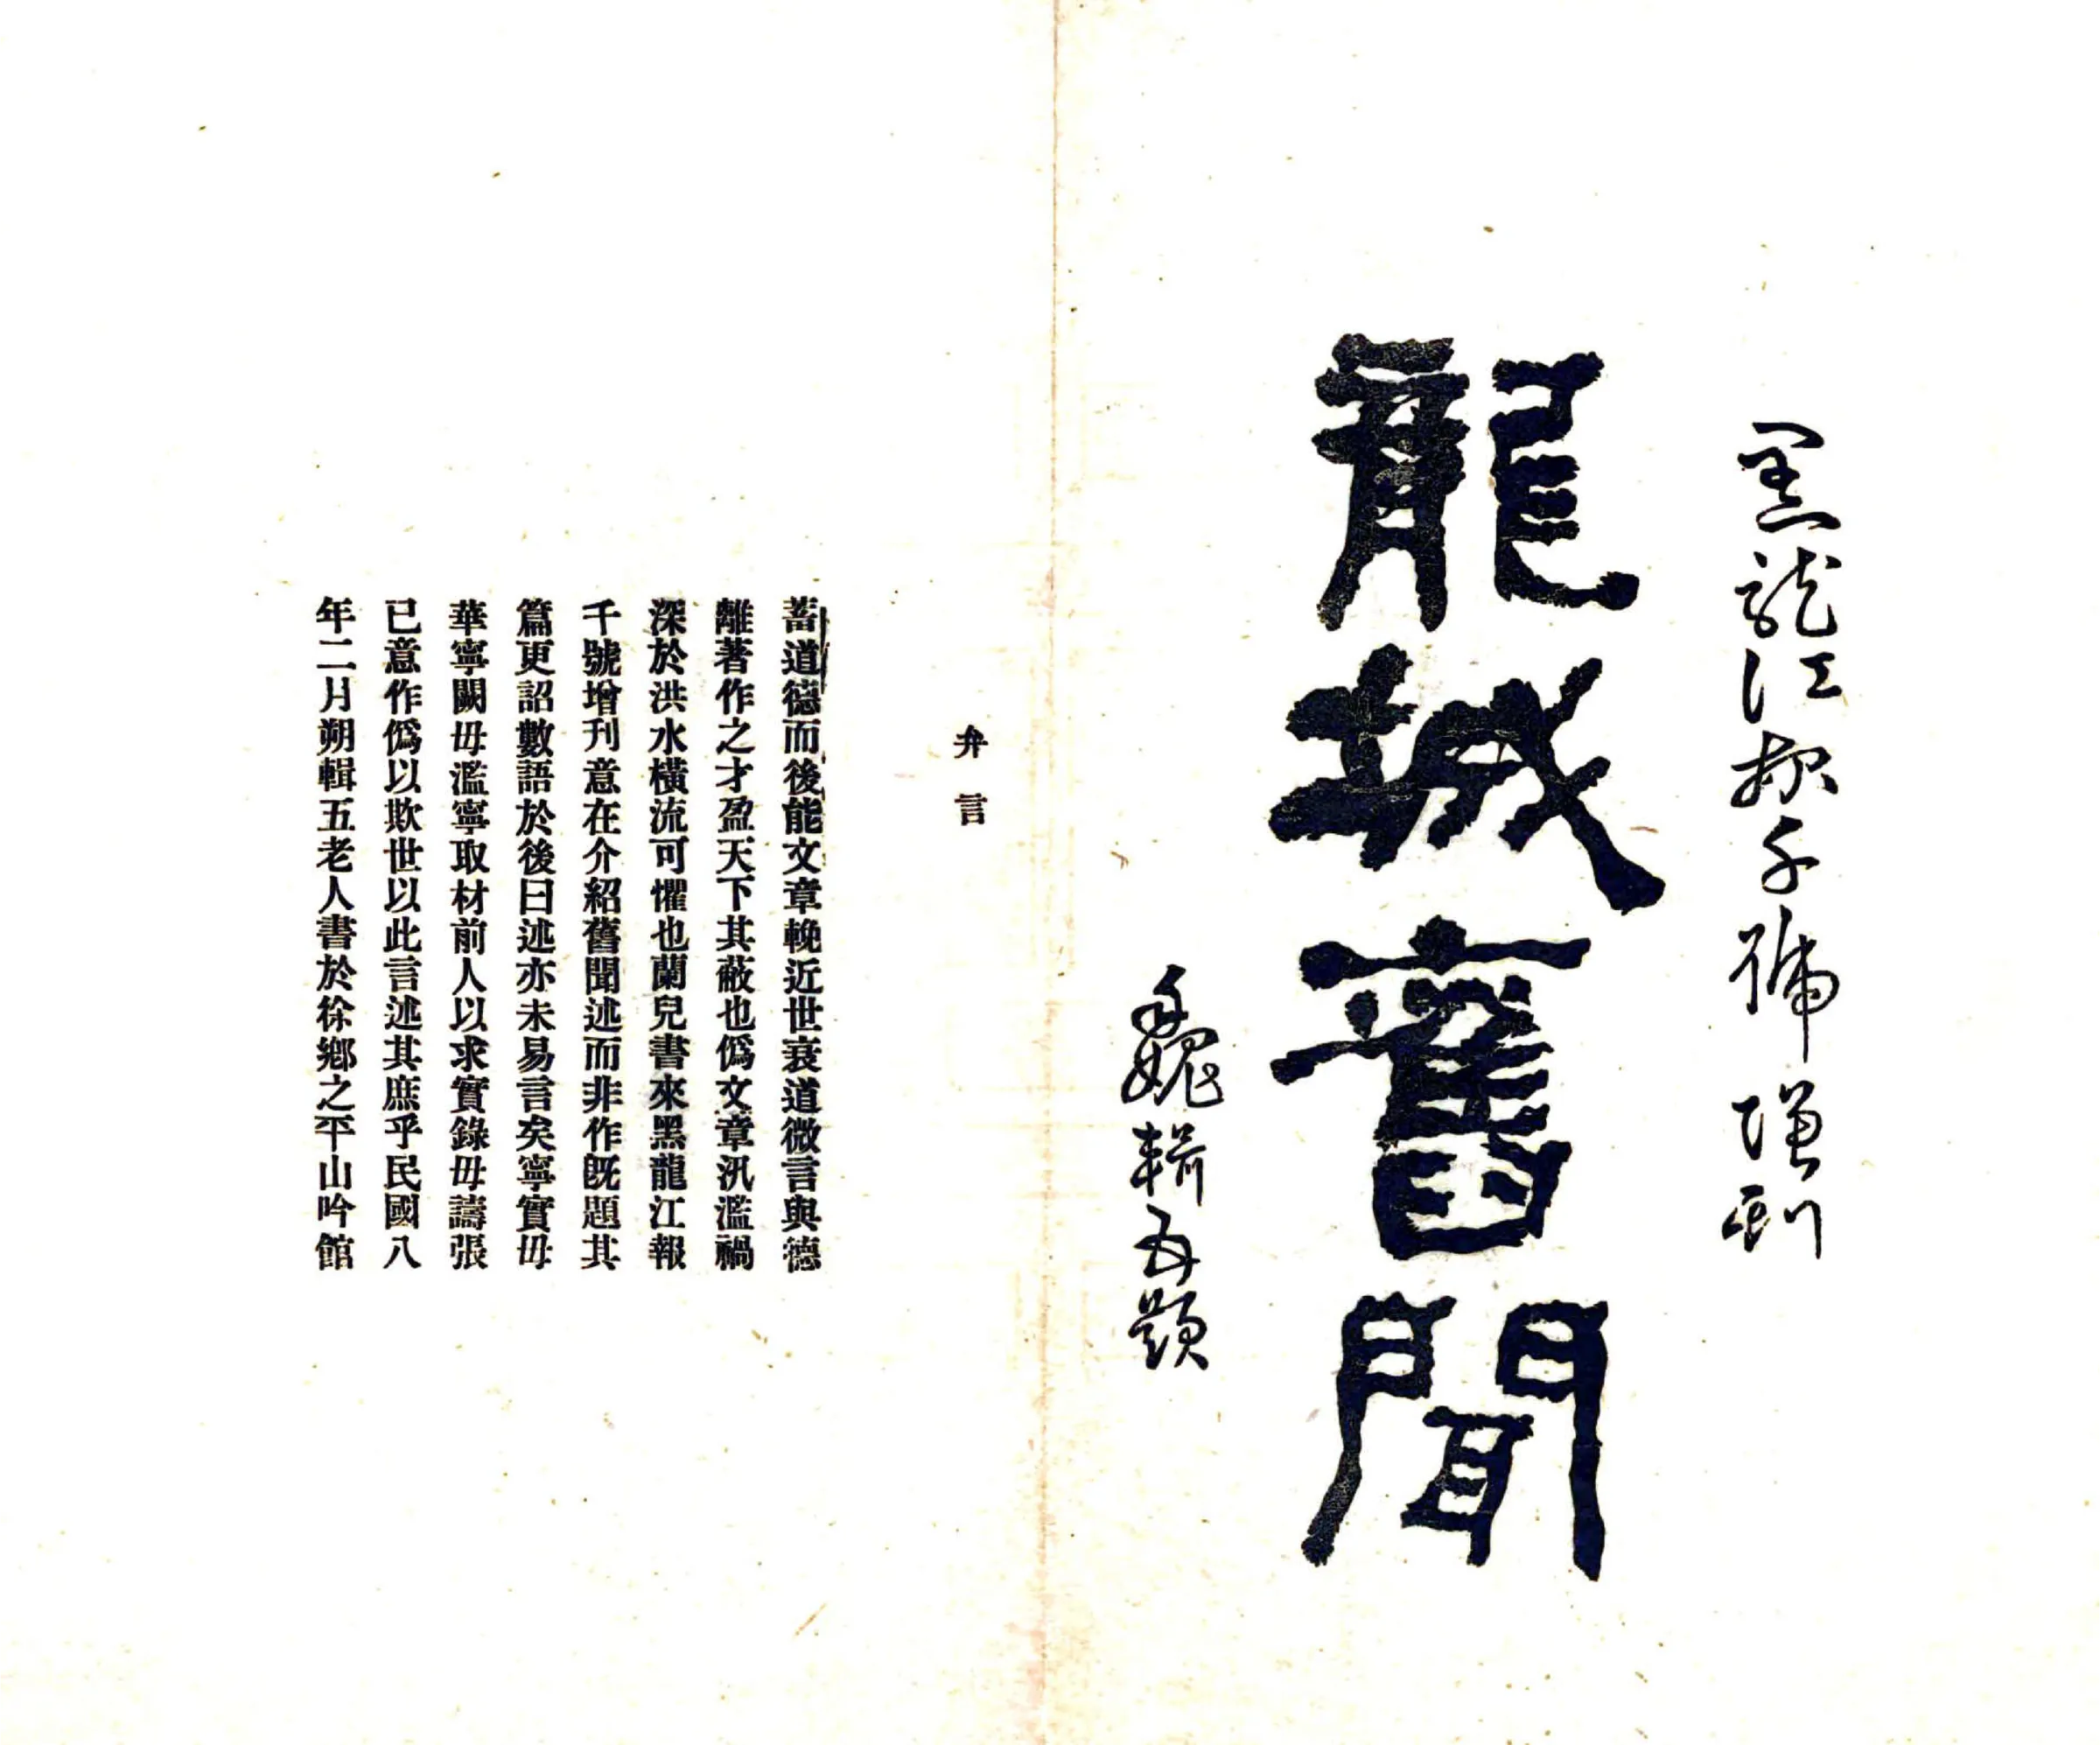 黑龍江報千號增刊
龍城舊聞
魏輯五題
弁言
蓄道德而後能文章輓近世衰道微言與德
離著作之才盈天下其蔽也僞文章汎濫禍
深於洪水橫流可懼也蘭兒書來黑龍江報
千號增刊意在介紹舊聞述而非作旣題其
篇更詔數語於後曰述亦未易言矣寧實毋
華寧闕毋濫寧取材前人以求實錄毋譸張
已意作僞以欺世以此言述其庶乎民國八
年二月朔輯五老人書於徐鄉之平山吟館